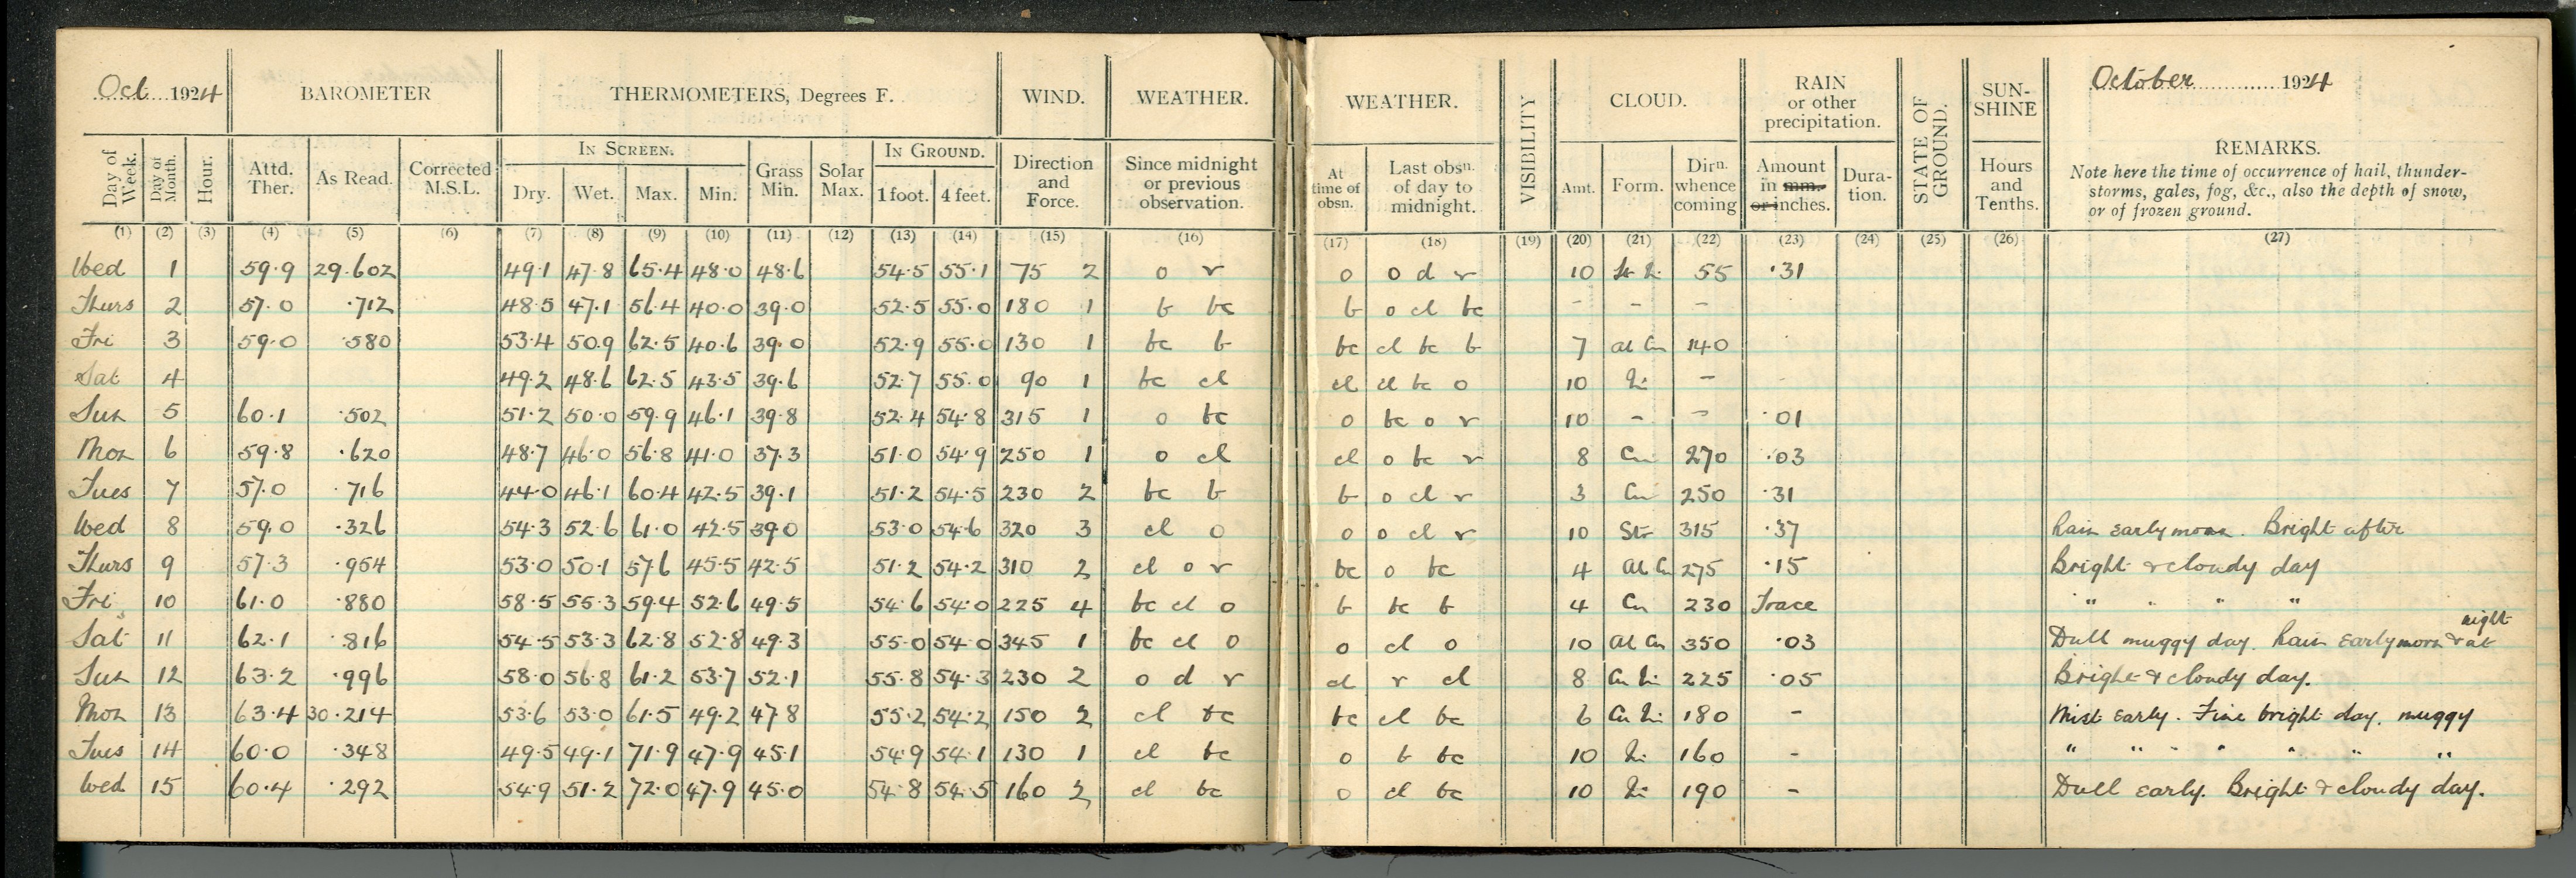 Oct 1924 BAROMETER THERMOMETERS, Degrees F. WIND. WEATHER. WEATHER. VISIBILITY CLOUD. RAIN or other precipitation. STATE OF GROUND. SUN-SHINE October 1924
Day of Week. Day of Month. Hour. Attd. Ther. As Read. Corrected M.S.L. IN SCREEN. Dry. Wet. Max. Min. Grass Min. Solar Max. IN GROUND. 1 foot. 4 feet. Direction and Force. Since midnight or previous observation. At time of obsn. Last obsn. of day to midnight. Amt. Form. Dirn. whence coming Amount in mm. or inches. Dura-tion. Hours and Tenths. REMARKS.
Note here the time of occurrence of hail, thunder-
storms, gales, fog, &c., also the depth of snow,
or of frozen ground.
(1) (2) (3) (4) (5) (6) (7) (8) (9) (10) (11) (12) (13) (14) (15) (16) (17) (18) (19) (20) (21) (22) (23) (24) (25) (26) (27)
Wed 1 59.9 29.602 49.1 47.8 65.4 48.0 48.6 54.5 55.1 75 2 o r o o d r 10 55 .31
Thurs 2 57.0 .712 48.5 47.1 56.4 40.0 39.0 52.5 55.0 180 1 b bc b o cl bc - - -
Fri 3 59.0 .580 53.4 50.9 62.5 40.6 39.0 52.9 55.0 130 1 bc b bc cl bc b 7 Al Cu 140
Sat 4 49.2 48.6 62.5 43.5 39.6 52.7 55.0 90 1 bc cl cl cl bc o 10 -
Sun 5 60.1 .502 51.2 50.0 59.9 46.1 39.8 52.4 54.8 315 1 o bc o bc o r 10 - - .01
Mon 6 59.8 .620 48.7 46.0 56.8 41.0 37.3 51.0 54.9 250 1 o cl cl o bc r 8 Cu 270 .03
Tues 7 57.0 .716 44.0 46.1 60.4 42.5 39.1 51.2 54.5 230 2 bc b b o cl r 3 Cu 250 .31
Wed 8 59.0 .326 54.3 52.6 61.0 42.5 39.0 53.0 54.6 320 3 cl o o o cl r 10 Str 315 .37 Rain early morn. Bright after
Thurs 9 57.3 .954 53.0 50.1 57.6 45.5 42.5 51.2 54.2 310 2 cl o r bc o bc 4 Al Cu 275 .15 Bright & cloudy day
Fri 10 61.0 .880 58.5 55.3 59.4 52.6 49.5 54.6 54.0 225 4 bc cl o b bc b 4 Cu 230 Trace " " " "
Sat 11 62.1 .816 54.5 53.3 62.8 52.8 49.3 55.0 54.0 345 1 bc cl o o cl o 10 Al Cu 350 .03 Dull muggy day. Rain early morn & at night
Sun 12 63.2 .996 58.0 56.8 61.2 53.7 52.1 55.8 54.3 230 2 o d r cl r cl 8 Cu 225 .05 Bright & cloudy day.
Mon 13 63.4 30.214 53.6 53.0 61.5 49.2 47.8 55.2 54.2 150 2 cl bc bc cl bc 6 Cu 180 - Mist early. Fine bright day. muggy
Tues 14 60.0 .348 49.5 49.1 71.9 47.9 45.1 54.9 54.1 130 1 cl bc o b bc 10 160 - " " " " " " "
Wed 15 60.4 .292 54.9 51.2 72.0 47.9 45.0 54.8 54.5 160 2 cl bc o cl bc 10 190 - Dull early. Bright & cloudy day.